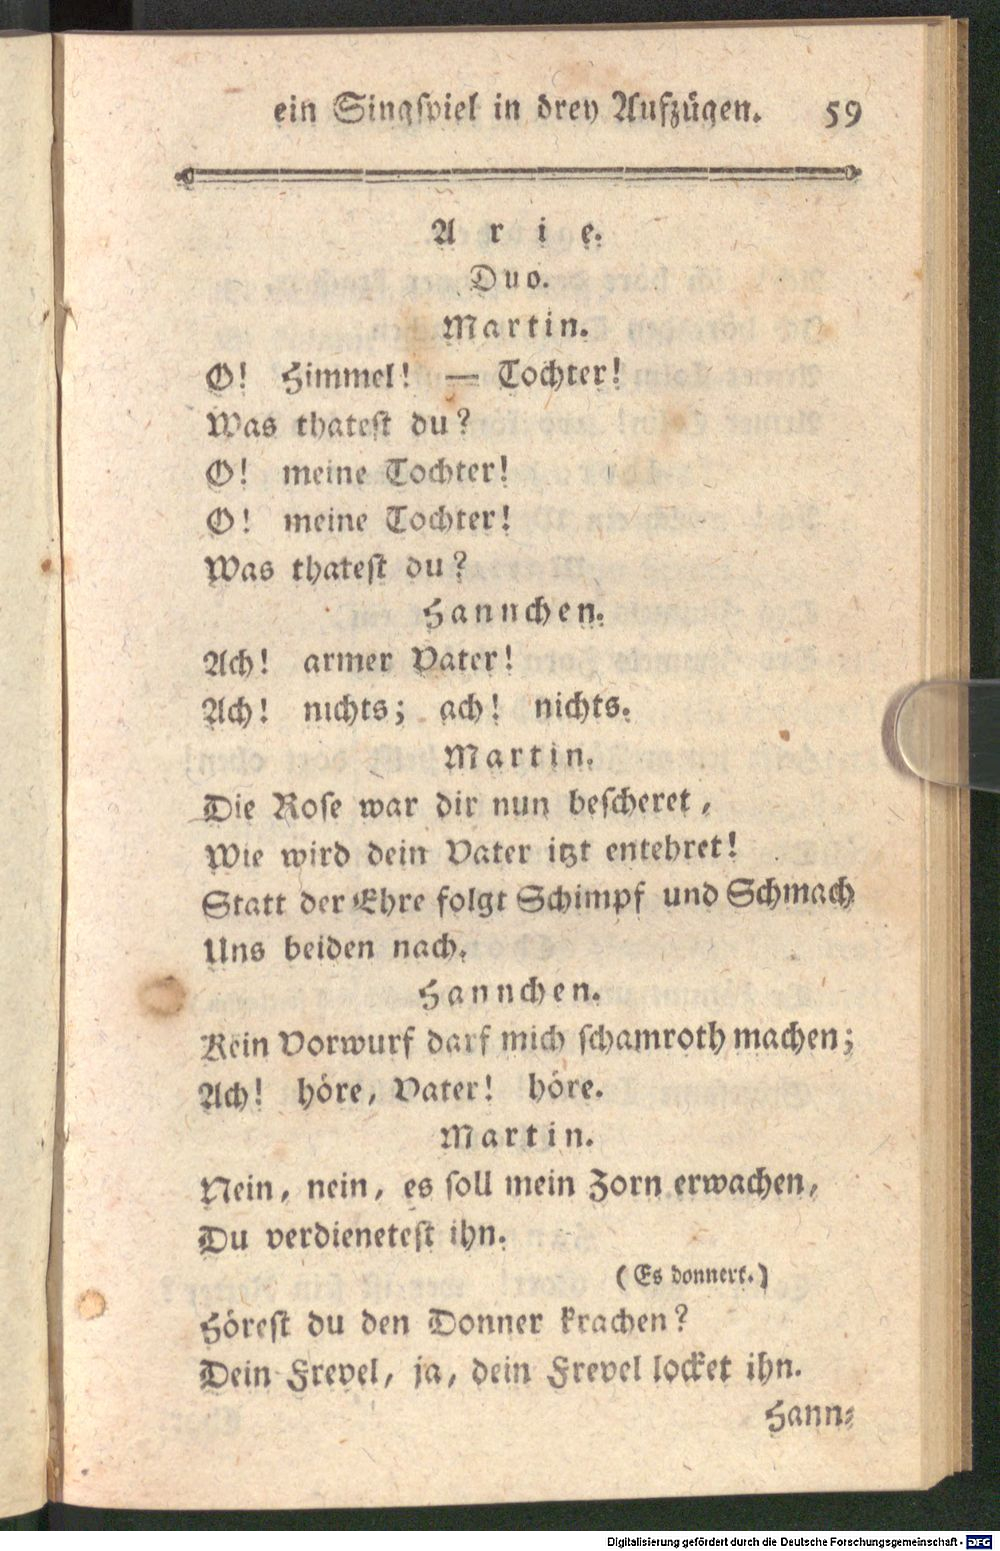 ein Singspiel in drey Aufzügen. 59
Arie.
Duo.
Martin.
O! Himmel! — Tochter!
Was thatest du?
O! meine Tochter!
O! meine Tochter!
Was thatest du?
Hannchen.
Ach! armer Vater!
Ach! nichts; ach! nichts.
Martin.
Die Rose war dir nun bescheret,
Wie wird dein Vater itzt entehret!
Statt der Ehre folgt Schimpf und Schmach
Uns beiden nach.
Hannchen.
Kein Vorwurf darf mich schamroth machen;
Ach! höre, Vater! höre.
Martin.
Nein, nein, es soll mein Zorn erwachen,
Du verdienetest ihn.
(Es donnert.)
Hörest du den Donner krachen?
Dein Frevel, ja, dein Frevel locket ihn.
Hann-
Digitalisierung gefördert durch die Deutsche Forschungsgemeinschaft - DFG